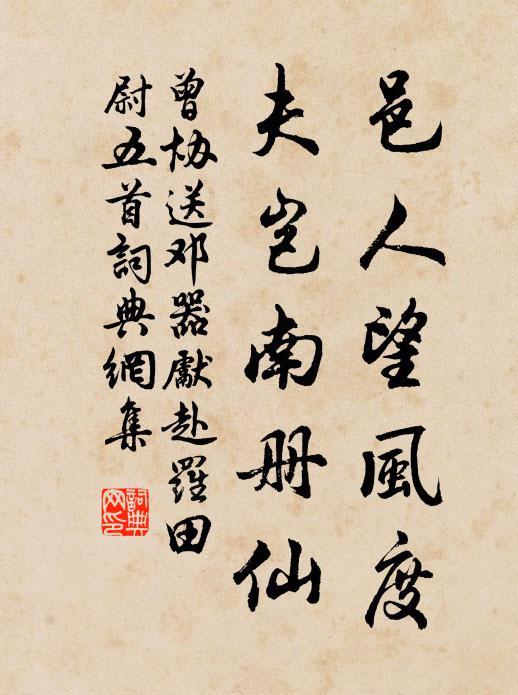 邑人望風度
夫岂南册仙
曾协送邓器獻赴羅田
尉五首詞典網集
詞典网印